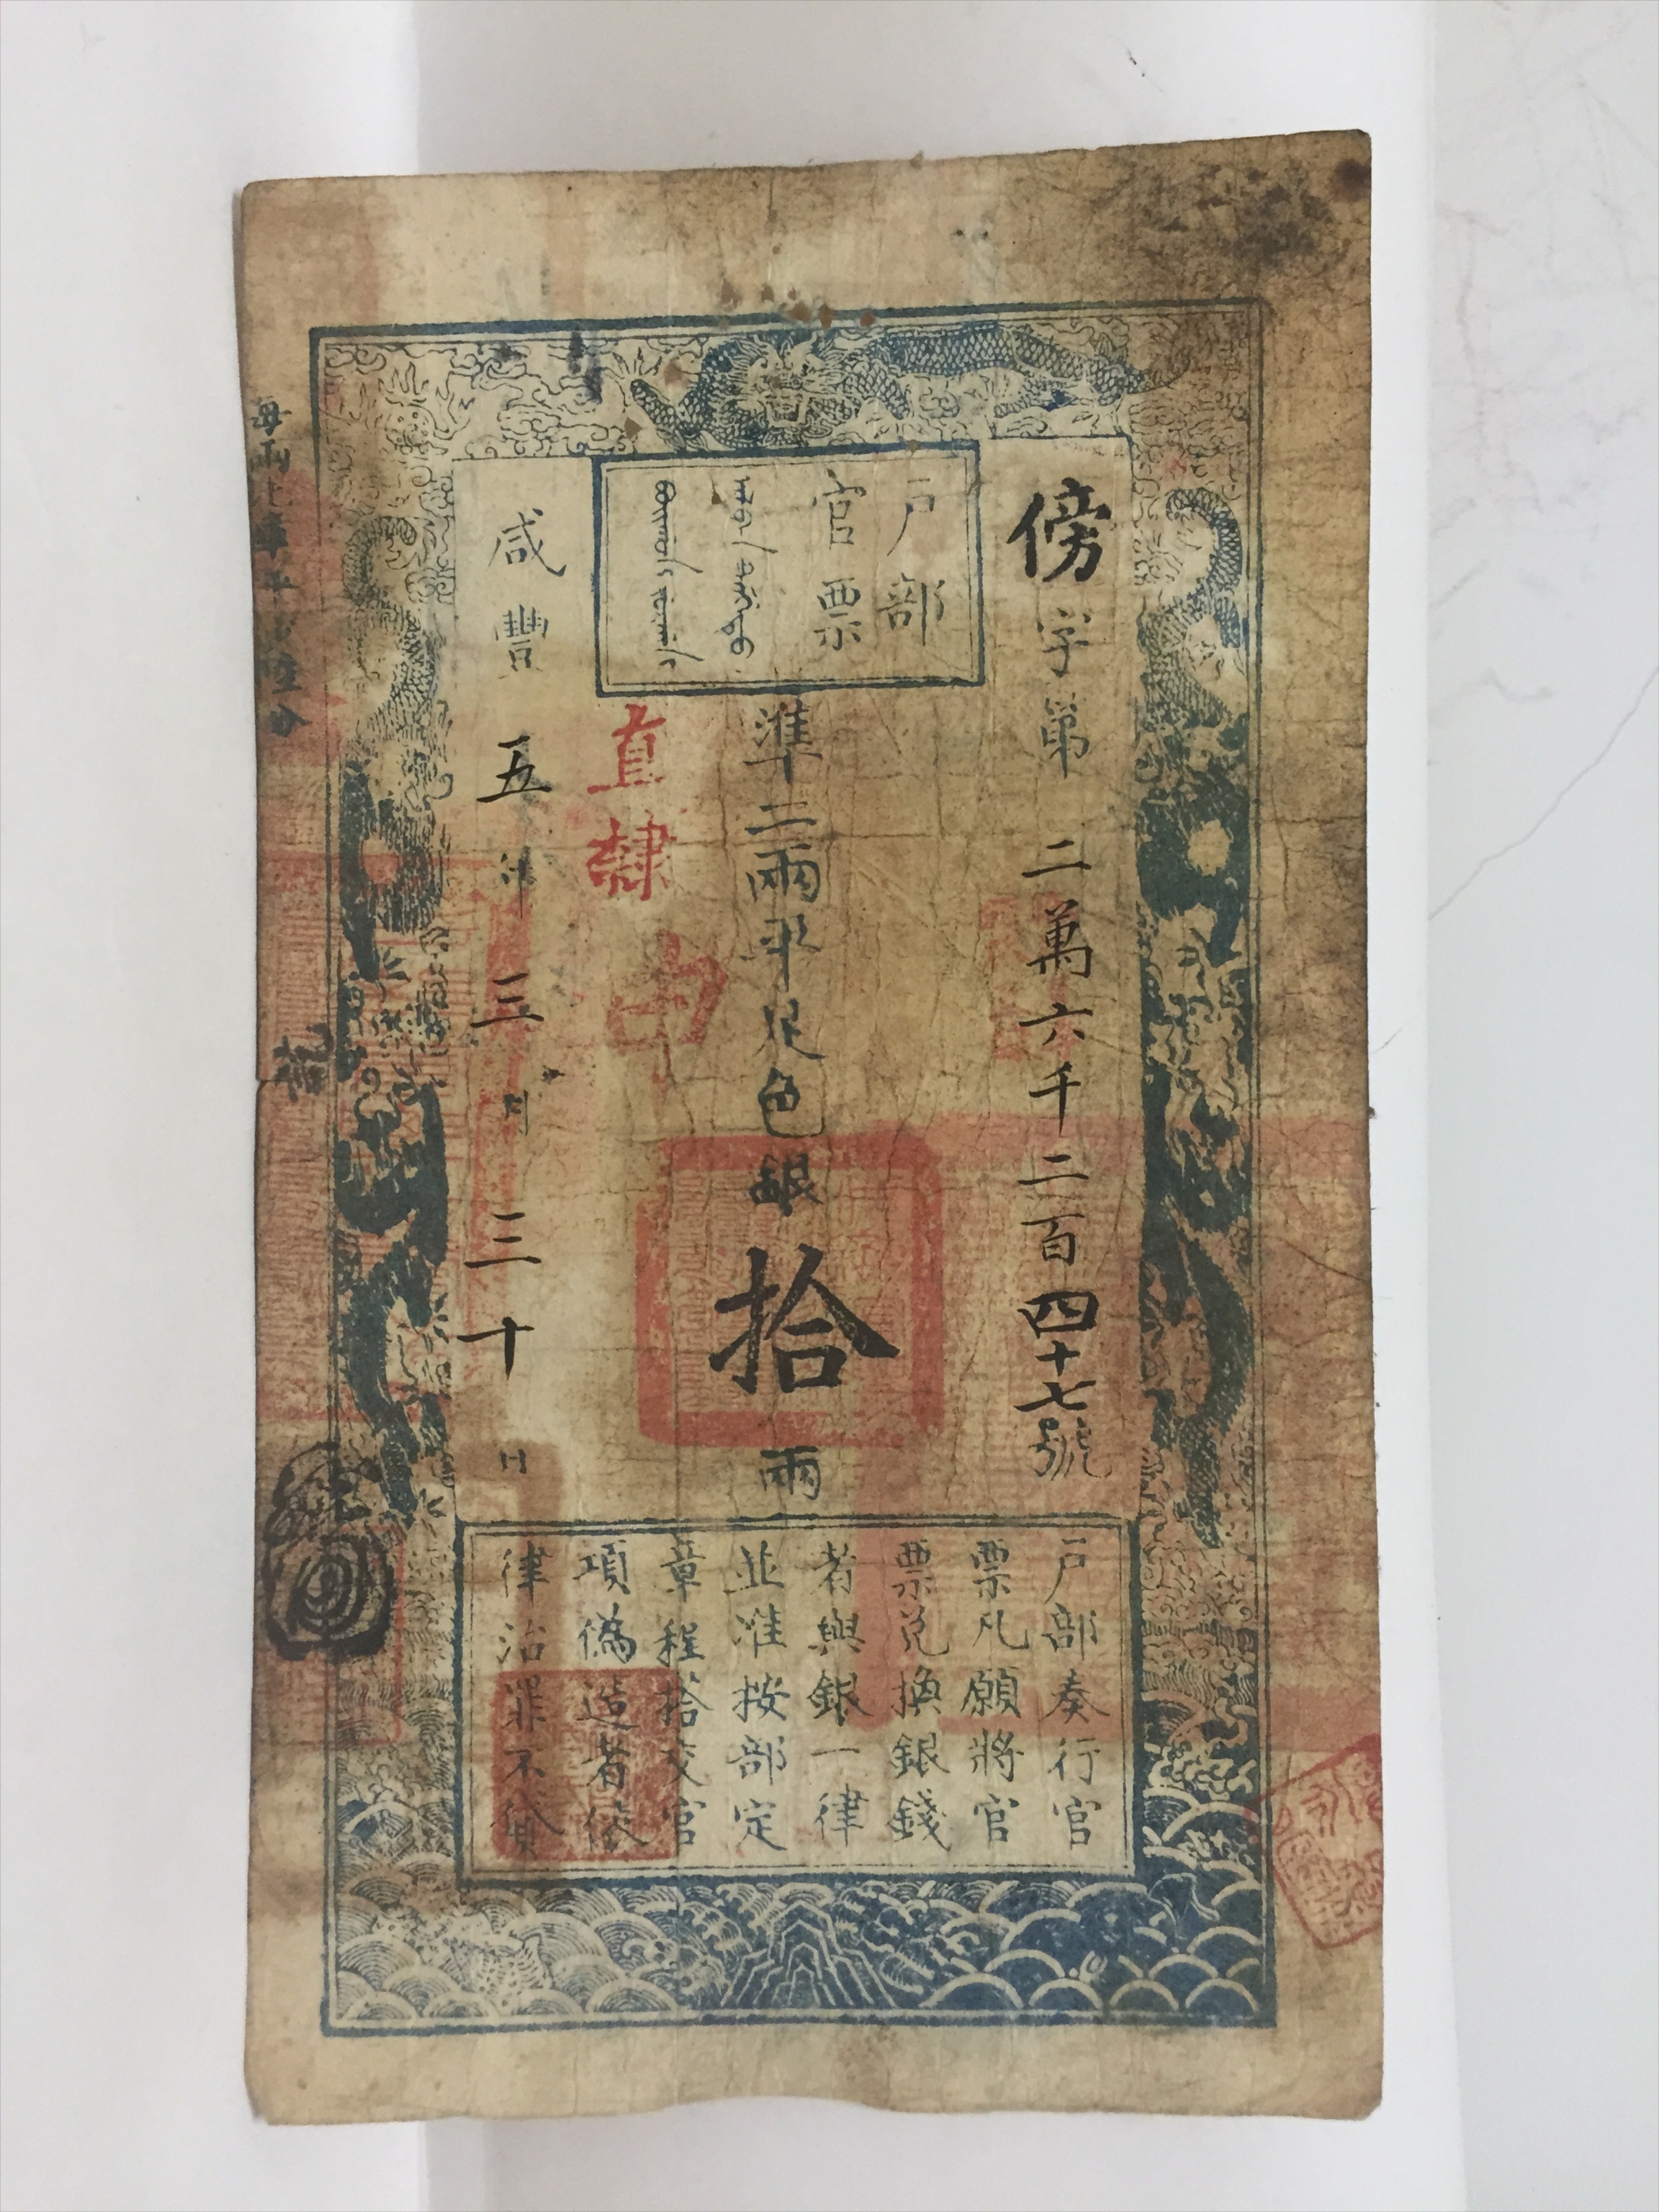 戶部
官票
傍字第二萬六千二百四十七號
準二兩平足色銀拾兩
直隸
咸豐五年三月三十日
戶部奏行官
票凡願將官
票兌換銀錢
者與銀一律
並准按部定
章程搭交官
項偽造者依
律治罪不貸
每兩